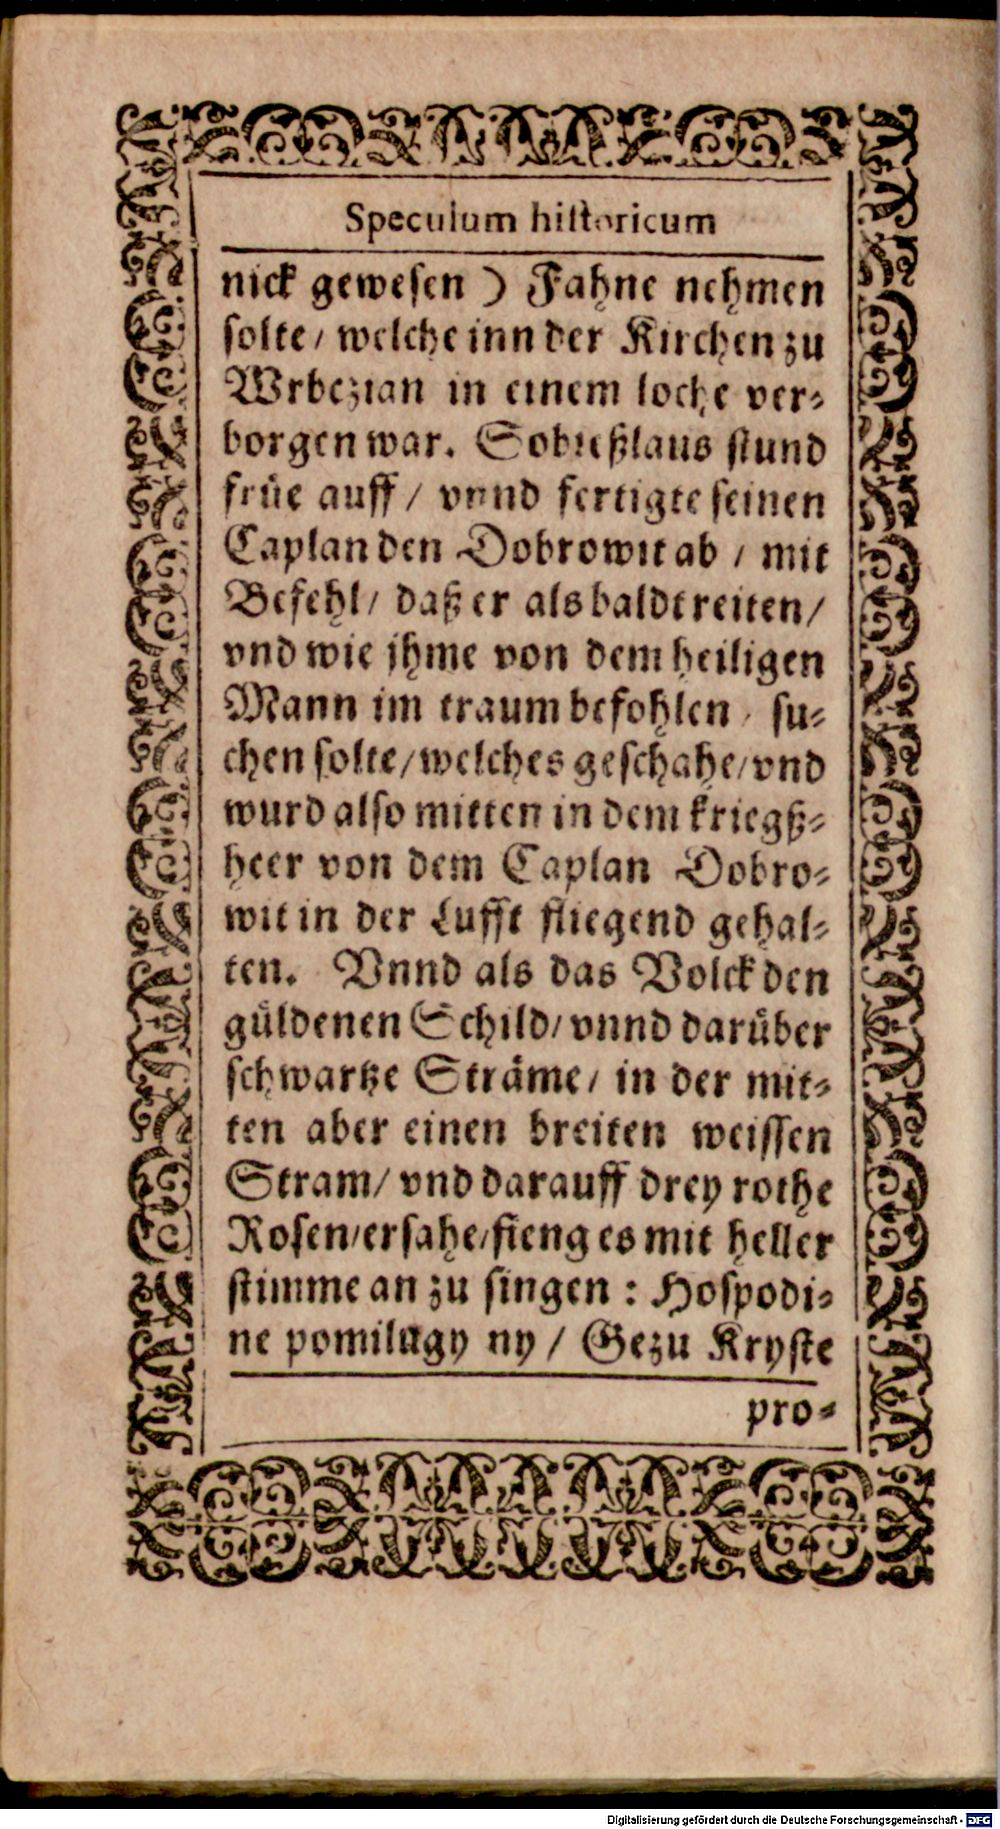 Speculum historicum
nick gewesen ) Fahne nehmen
solte / welche inn der Kirchen zu
Wrbezian in einem loche ver-
borgen war. Sobießlaus stund
früe auff / vnnd fertigte seinen
Caplan den Dobrowit ab / mit
Befehl / daß er als baldt reiten /
vnd wie jhme von dem heiligen
Mann im traum befohlen / su-
chen solte / welches geschahe / vnd
wurd also mitten in dem kriegß-
heer von dem Caplan Dobro-
wit in der Lufft fliegend gehal-
ten. Vnnd als das Volck den
güldenen Schild / vnnd darüber
schwartze Sträme / in der mit-
ten aber einen breiten weissen
Stram / vnd darauff drey rothe
Rosen / ersahe / fieng es mit heller
stimme an zu singen : Hospodi-
ne pomilugy ny / Gezu Kryste
pro-
Digitalisierung gefördert durch die Deutsche Forschungsgemeinschaft - DFG